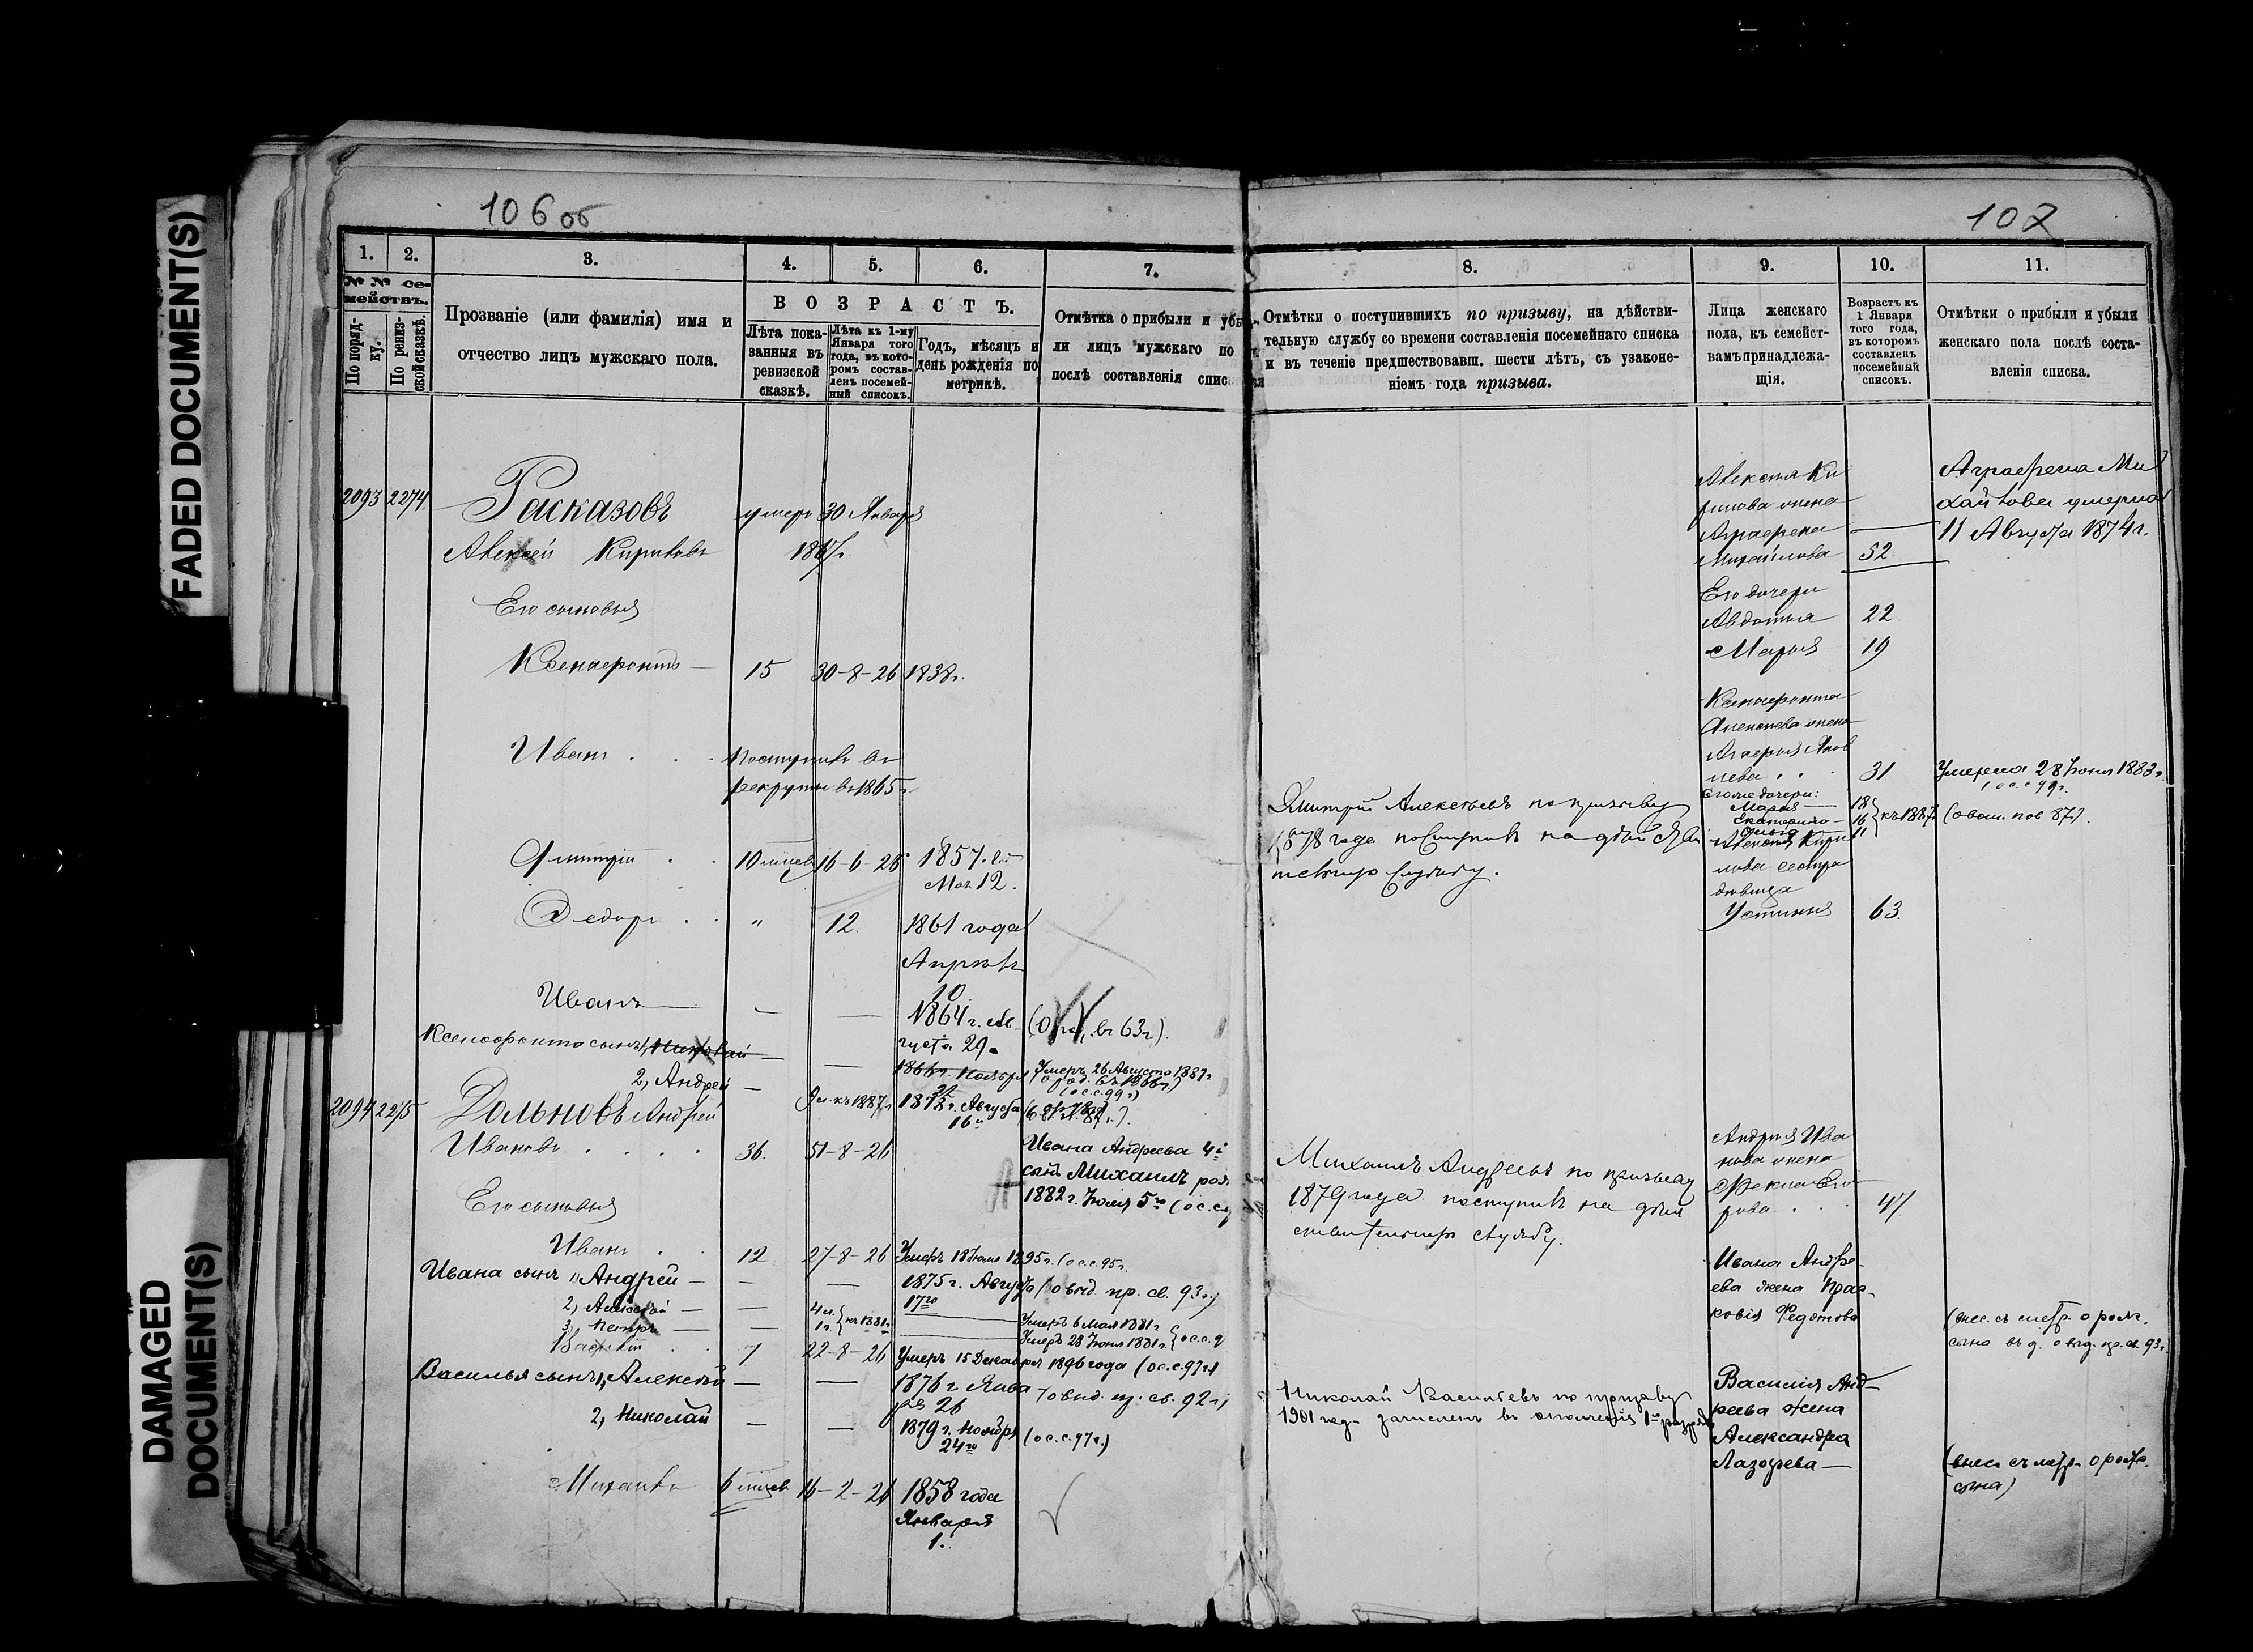 FADED DOCUMENT(S)
DAMAGED
DOCUMENT(S)
106 об
107
1. 2. 3. 4. 5. 6. 7.
№ № се-
мействъ.
По поряд-
ку.
По ревиз-
ской сказкѣ.
Прозваніе (или фамилія) имя и
отчество лицъ мужскаго пола.
ВОЗРАСТЪ.
Лѣта пока-
занныя въ
ревизской
сказкѣ.
Лѣта къ 1-му
Января того
года, въ кото-
ромъ состав-
ленъ посемей-
ный списокъ.
Годъ, мѣсяцъ и
день рожденія по
метрикѣ.
Отмѣтка о прибыли и убы-
ли лицъ мужскаго по
послѣ составленія спис
2093 2274 Расказовъ умеръ 30 Января
Алексѣй Кириловъ
Его сыновья
Ксенофонтъ 15 30-8-26 1838г.
Иванъ . . поступилъ въ
рекруты въ 1865г
Дмитрій . . 10 мѣсев 16-6-26 1857
Мая 12.
Федоръ . . " 12. 1861 года
Апрѣля
10
Иванъ — — — 1864 г. Ав- въ 63г).
густа 29.
Ксенофонта сынъ 1, Николай — — 1866г. Ноября Умеръ 26 Августа 1887г
2, Андрей — 9 л. къ 1887г. Августа
16
2094 2275 Дольновъ Андрей
Ивановъ . . . . 36. 51-8-26
Ивана Андреева 4й
сынъ Михаилъ род.
1882 г. Іюля 5го
Его сыновья
Иванъ . . 12 27-8-26 Умеръ 18 1895г. (о с.с. 95г.
Ивана сынъ 1, Андрей — — — 1875 г. Августа (о выд. пр. св. 93г.)
17го
2, Алексѣй — — 4 л. } къ 1881г. Умеръ 6 Мая 1881г
3, Петръ — — 1 г. Умеръ 28 Іюня 1881г. } о с.с.
Василій . . 7 22-8-26 Умеръ 15 Декабря 1896 года (о с.с. 97г.)
Василья сынъ 1, Алексѣй — — 1876 г. Янва (о выд. пр. св. 92г.)
ря 26
2, Николай — — 1879 г. Ноября (о с.с. 97г.)
24го
Михаилъ 6 мѣсев 16-2-26 1858 года
Января
1.
8. 9. 10. 11.
Отмѣтки о поступившихъ по призыву, на дѣйстви-
тельную службу со времени составленія посемейнаго списка
и въ теченіе предшествовавш. шести лѣтъ, съ узаконе-
ніемъ года призыва.
Лица женскаго
пола, къ семейст-
вамъ принадлежа-
щія.
Возрастъ къ
1 Января
того года,
въ которомъ
составленъ
посемейный
списокъ.
Отмѣтки о прибыли и убыли
женскаго пола послѣ соста-
вленія списка.
Алексѣя Ки
рилова жена
Аграфена —
Михайлова 52.
Аграфена Ми
хайлова умерла
11 Августа 1874г.
Его дочери
Авдотья 22.
Марья 19
Ксенофонта
Алексѣева жена
Яков
лева . . 31 Умерла 28 Іюня 1883г.
(о с.с. 99г.
Его же дочери:
Марья — 18
Екатерина — 16 } къ 1887г.
Ольга 11
Алексѣя Кири
лова сестра
дѣвица
Устинья 63.
Дмитрій Алексѣевъ по призыву
1878 года поступилъ на дѣйстви
тельную службу.
Михаилъ Андреевъ по призыву
1879 года поступилъ на дѣй
ствительную службу.
Андрея Ива
нова жена
Фекла Его
рова . . 47.
Ивана Андре-
ева жена Прас-
ковія Федотова
(внес. съ метр. о рожд.
сына въ д. о выд. пр. св. 93г.
Николай Васильевъ по призыву
1901 года зачисленъ въ ополченіе 1го разряда
Василія Анд-
реева жена
Александра
Лазарева —
(внес. съ метр. о рожд.
сына)